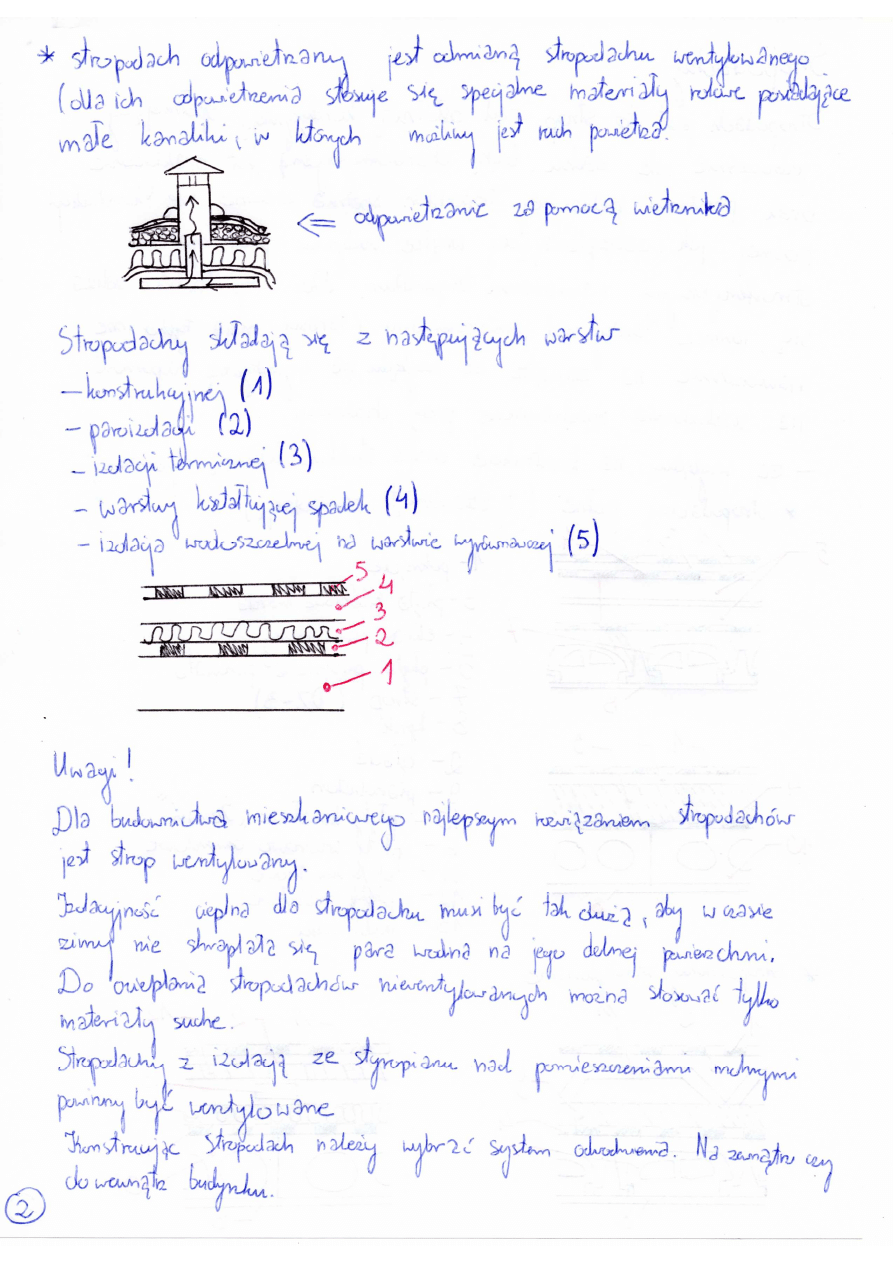 * stropodach odpowietrzany jest odmianą stropodachu wentylowanego
(dla ich odpowietrzenia stosuje się specjalne materiały rolowe posiadające
małe kanaliki, w których możliwy jest ruch powietrza.
<= odpowietrzanie za pomocą wietrznika
Stropodachy składają się z następujących warstw
- konstrukcyjnej (1)
- paroizolacji (2)
- izolacji termicznej (3)
- warstwy kształtującej spadek (4)
- izolacja wodoszczelnej na warstwie wyrównawczej (5)
5
4
3
2
1
Uwagi!
Dla budownictwa mieszkaniowego najlepszym rozwiązaniem stropodachów
jest strop wentylowany.
Izolacyjność cieplna dla stropodachu musi być tak duża, aby w czasie
zimy nie skraplała się para wodna na jego dolnej powierzchni.
Do ocieplania stropodachów niewentylowanych można stosować tylko
materiały suche.
Stropodachy z izolacją ze styropianu nad pomieszczeniami mokrymi
powinny być wentylowane
Konstruując stropodach należy wybrać system odwodnienia. Na zewnątrz czy
do wewnątrz budynku.
2